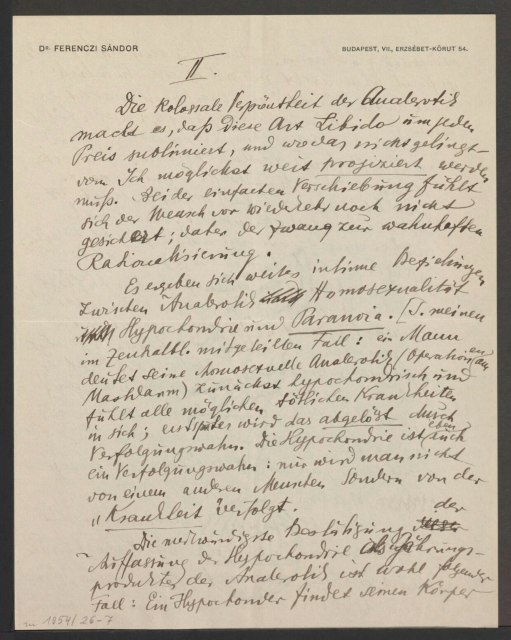 Dr. FERENCZI SÁNDOR
BUDAPEST, VII., ERZSÉBET-KÖRUT 54.
II.
Die kolossale Verpöntheit der Analerotik
macht es, daß diese Art Libido um jeden
Preis sublimiert, und wo das nicht gelingt –
vom Ich möglichst weit projiziert werden
muß. Bei der einfachen Verschiebung fühlt
sich der Mensch vor Wiederkehr noch nicht
gesichert; daher der Zwang zur wahnhaften
Rationalisierung.
Es ergeben sich weites intime Beziehungen
zwischen Analerotik Homosexualität
Hypochondrie und Paranoia. (S. meinen
im Zentralbl. mitgeteilten Fall: ein Mann
deutet seine homosexuelle Analerotik (Operationen am
Mastdarm) zunächst hypochondrisch und
fühlt alle möglichen tötlichen Krankheiten
in sich; erst später wird das abgelöst durch
Verfolgungswahn. Die Hypochondrie ist eben auch
ein Verfolgungswahn: nur wird man nicht
von einem anderen Menschen sondern von der
„Krankheit" verfolgt.
Die merkwürdigste Bestätigung der
Auffassung der Hypochondrie als
produktes der Analerotik ist wohl folgender
Fall: Ein Hypochonder findet seinen Körper
1854/26-7